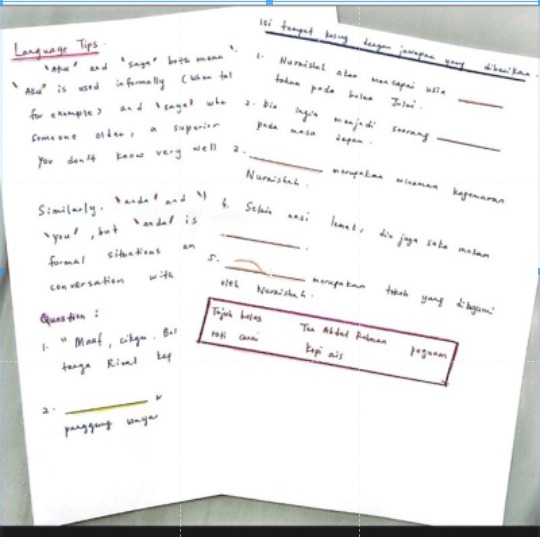 Language Tips.
"Aku" and "saya" both mean "
"Aku" is used informally (When tal
for example) and "saya" whe
someone older, a superior
you don't know very well
Similarly, "anda" and "
"you", but "anda" is
formal situations an
conversation with
Question :
1. " Maaf, cikgu. Bol
tenga Rizal kep
2. __________
panggung wayan
Isi tempat kosong dengan jawapan yang diberikan.
1. Nuraishah akan mencapai usia ______
tahun pada bulan Julai.
2. Dia ingin menjadi seorang ________
pada masa depan.
3. __________ merupakan minuman kegemaran
Nuraishah.
4. Selain nasi lemak, dia juga suka makan
__________.
5. __________ merupakan tokoh yang dikagumi
oleh Nuraishah.
Tujuh belas Tun Abdul Rahman peguam
roti canai kopi ais